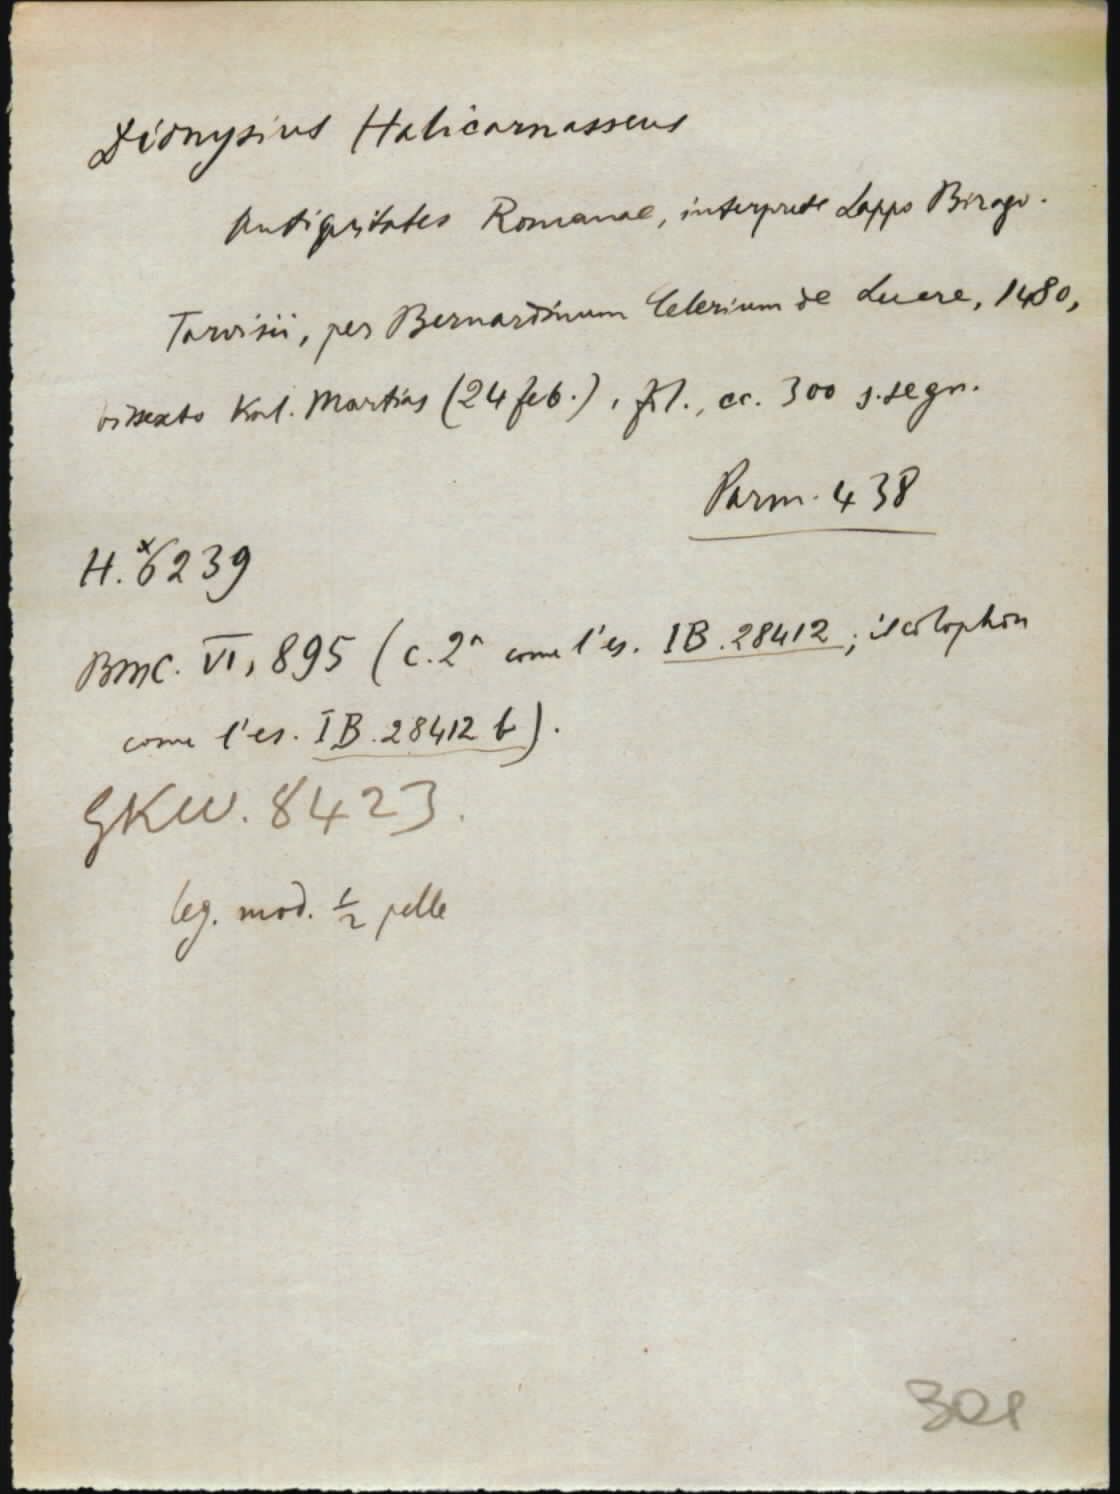 Dionysius Halicarnasseus
Antiquitates Romanae, interprete Lappo Birago.
Tarvisii, per Bernardinum Celerium de Luere, 1480,
bissexto Kal. Martias (24 feb.), fol., cc. 300 s.segn.
Parm. 438
H.*6239
BMC. VI, 895 (c.2ª come l'es. IB.28412; il colophon
come l'es. IB.28412 b).
GKW. 8423.
leg. mod. ½ pelle
301